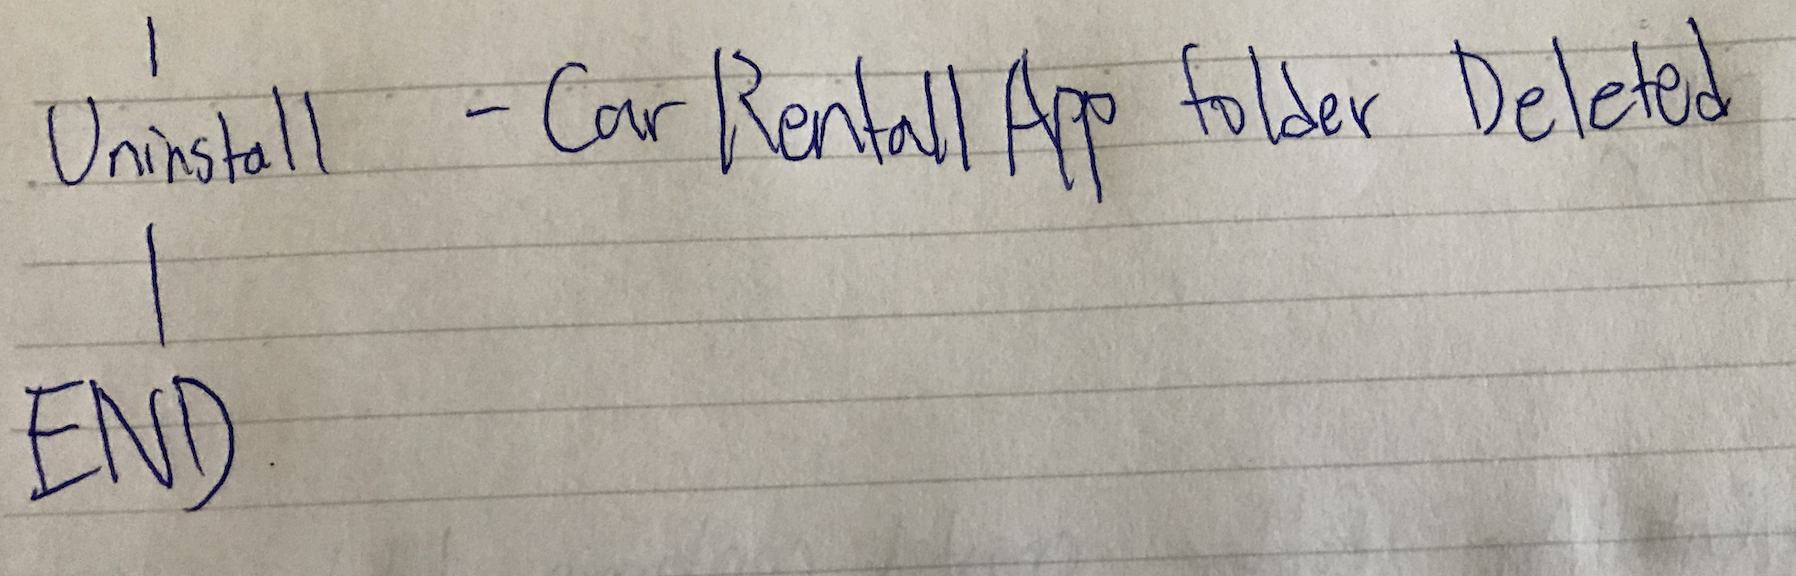 Uninstall - Car Rentall App folder Deleted
END